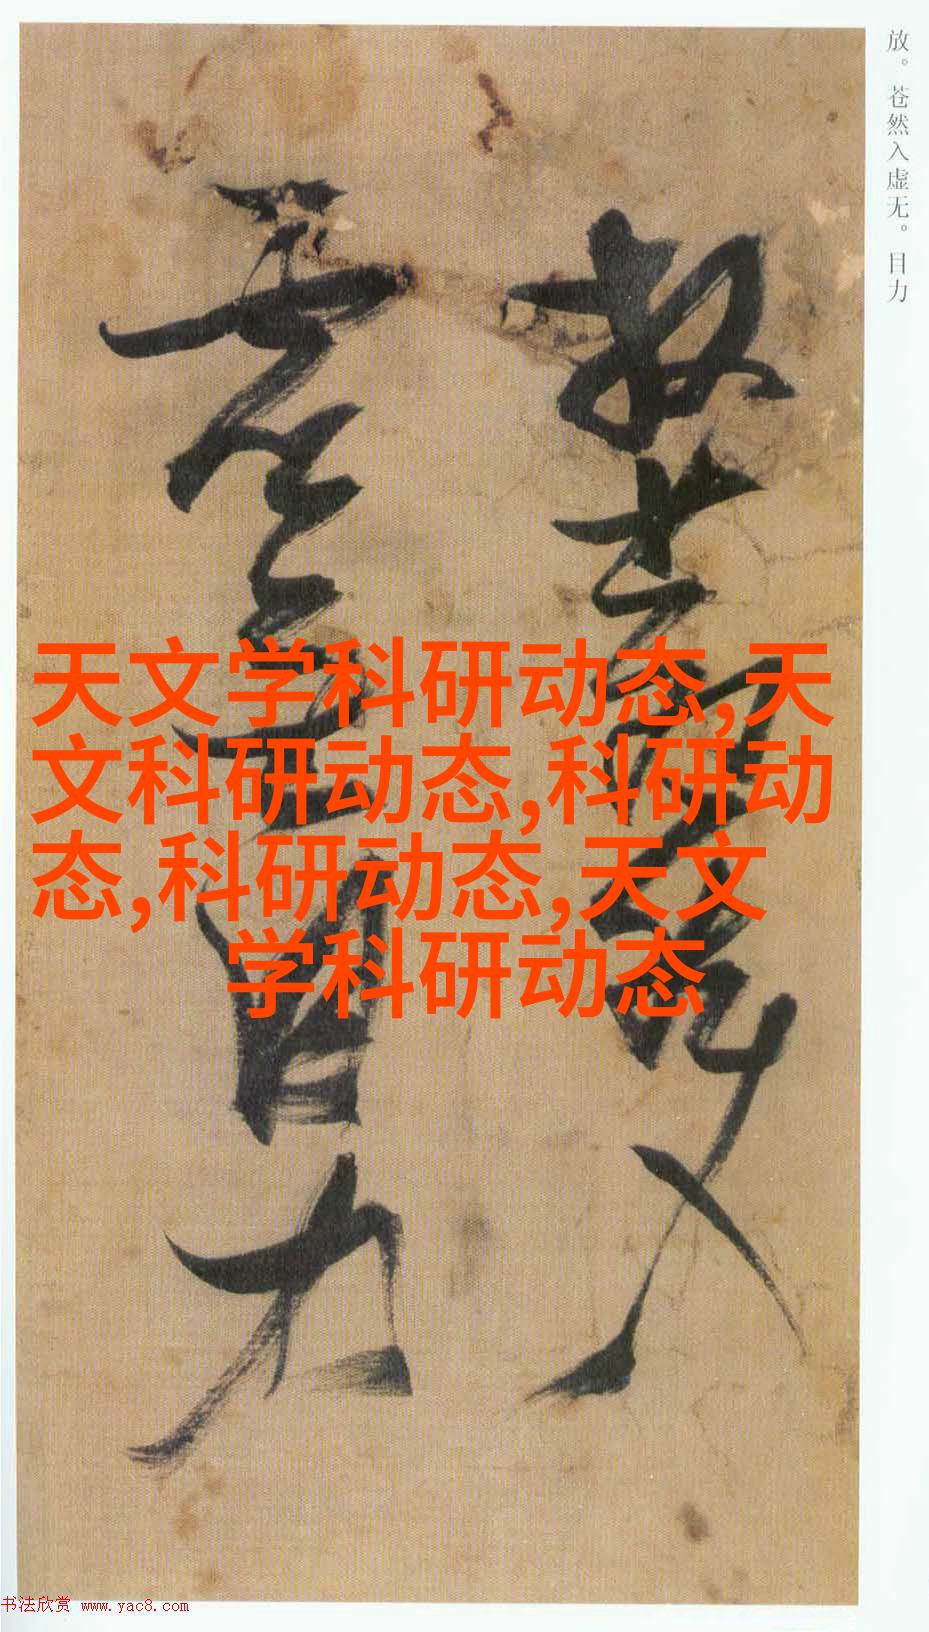 放。苍然入虚无。目力
放苍然入
虚无目力
天文学科研动态,天
文科研动态,科研动
态,科研动态,天文
学科研动态
书法欣赏 www.yac8.com